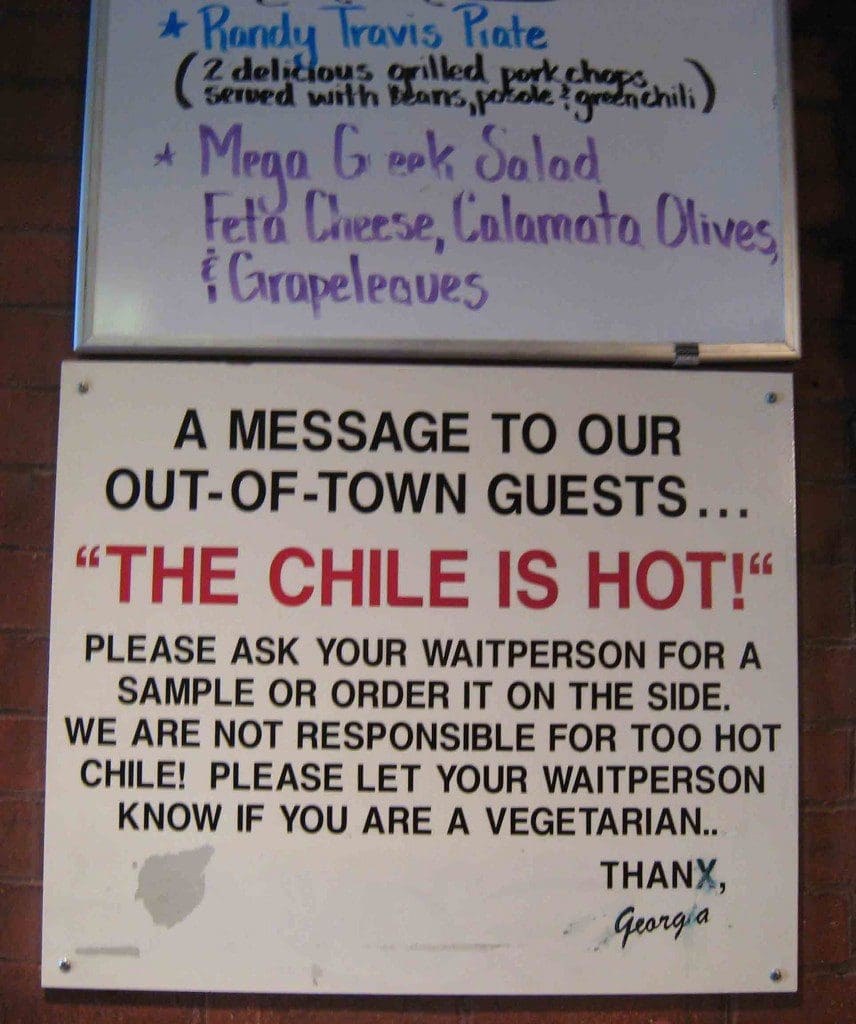 ★ Randy Travis Plate
(2 delicious grilled pork chops
served with Beans, posole & green chili)
★ Mega G eek Salad
Feta Cheese, Calamata Olives,
& Grapeleaves
A MESSAGE TO OUR
OUT-OF-TOWN GUESTS...
“THE CHILE IS HOT!“
PLEASE ASK YOUR WAITPERSON FOR A
SAMPLE OR ORDER IT ON THE SIDE.
WE ARE NOT RESPONSIBLE FOR TOO HOT
CHILE! PLEASE LET YOUR WAITPERSON
KNOW IF YOU ARE A VEGETARIAN..
THANX,
Georgia